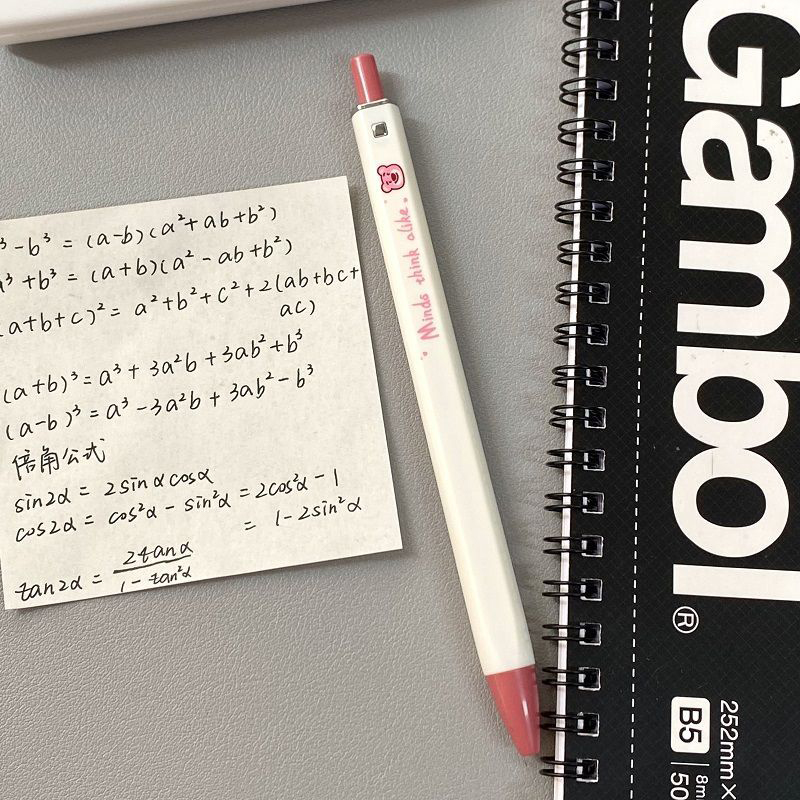 ³-b³ = (a-b)(a²+ab+b²)
a³+b³ = (a+b)(a²-ab+b²)
(a+b+c)² = a²+b²+c²+2(ab+bc+
ac)
(a+b)³ = a³+3a²b+3ab²+b³
(a-b)³ = a³-3a²b+3ab²-b³
倍角公式
sin2α = 2sinαcosα
cos2α = cos²α - sin²α = 2cos²α - 1
= 1-2sin²α
tan2α = 2tanα / 1-tan²α
Minds think alike.
Gambol®
252mm×
B5
8m
50